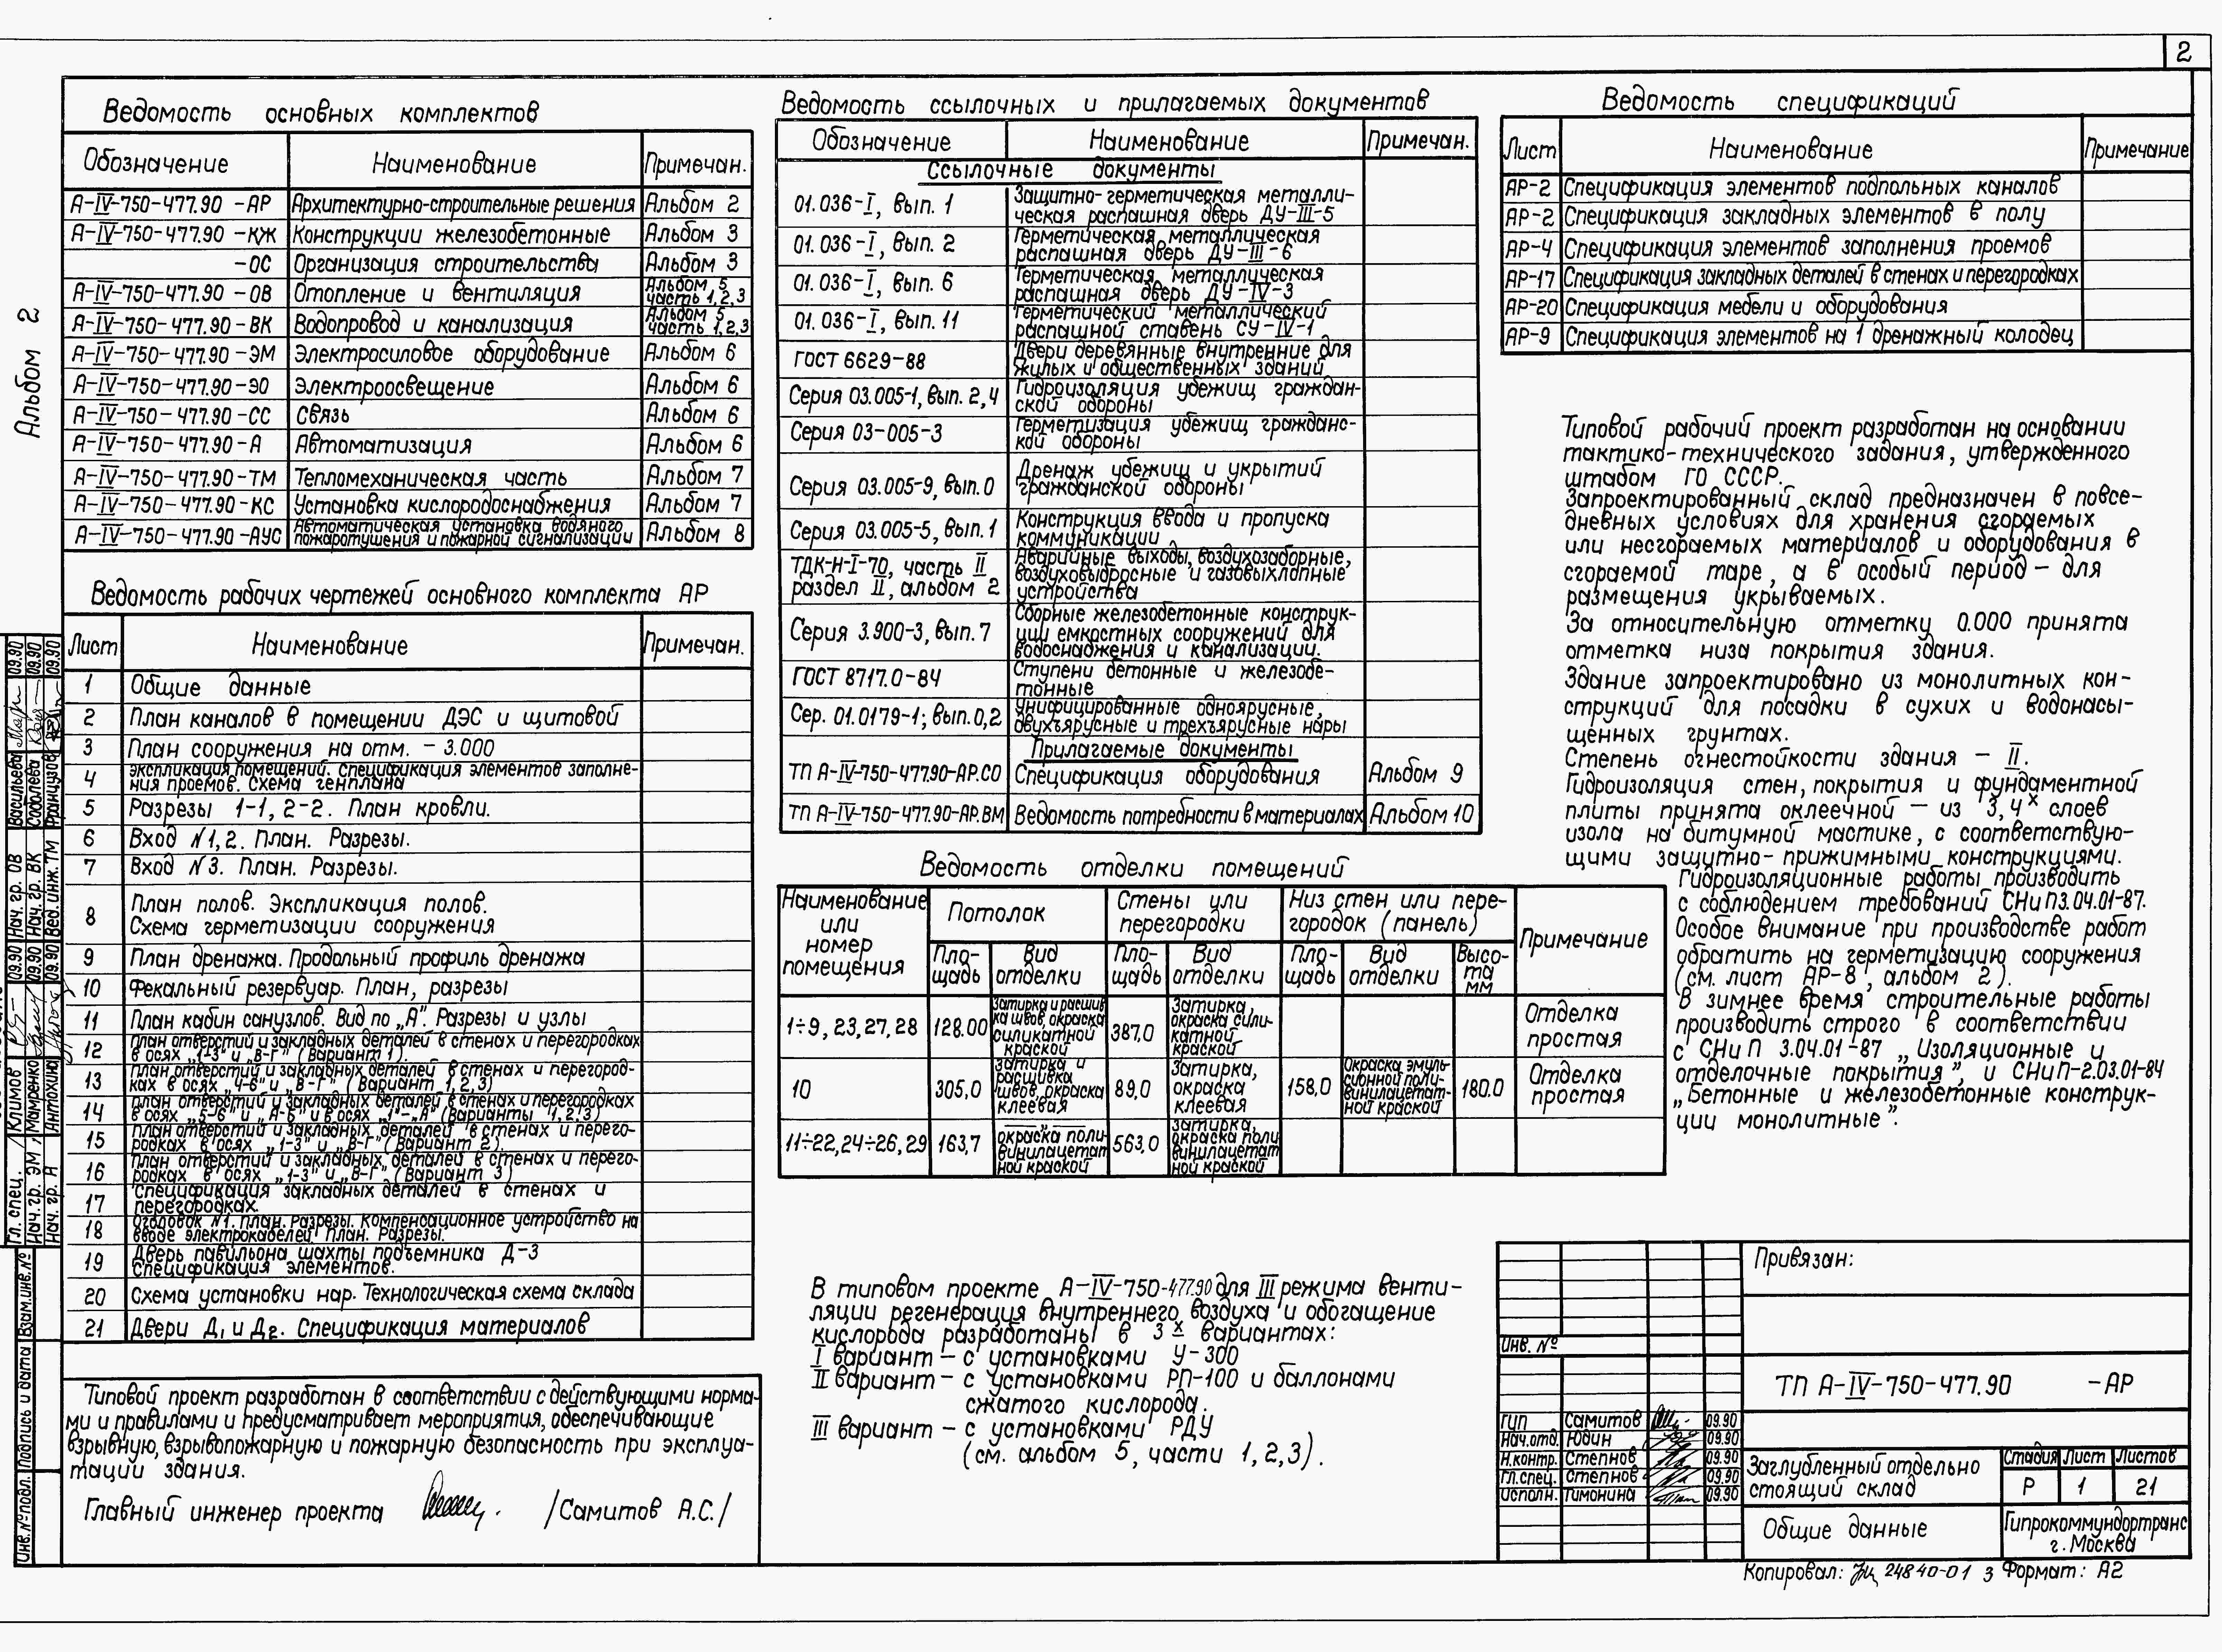 2
Альбом 2
Ведомость основных комплектов
Обозначение Наименование Примечан.
А-IV-750-477.90 -АР Архитектурно-строительные решения Альбом 2
А-IV-750-477.90 -КЖ Конструкции железобетонные Альбом 3
-ОС Организация строительства Альбом 3
А-IV-750-477.90 -ОВ Отопление и вентиляция Альбом 5 часть 1,2,3
А-IV-750-477.90 -ВК Водопровод и канализация Альбом 5 часть 1,2,3
А-IV-750-477.90 -ЭМ Электросиловое оборудование Альбом 6
А-IV-750-477.90 -ЭО Электроосвещение Альбом 6
А-IV-750-477.90 -СС Связь Альбом 6
А-IV-750-477.90 -А Автоматизация Альбом 6
А-IV-750-477.90 -ТМ Тепломеханическая часть Альбом 7
А-IV-750-477.90 -КС Установка кислородоснабжения Альбом 7
А-IV-750-477.90 -АУС Автоматическая установка водяного
пожаротушения и пожарной сигнализации Альбом 8
Ведомость рабочих чертежей основного комплекта АР
Лист Наименование Примечан.
1 Общие данные
2 План каналов в помещении ДЭС и щитовой
3 План сооружения на отм. - 3.000
4 Экспликация помещений. Спецификация элементов заполне-
ния проемов. Схема генплана
5 Разрезы 1-1, 2-2. План кровли.
6 Вход №1,2. План. Разрезы.
7 Вход №3. План. Разрезы.
8 План полов. Экспликация полов.
Схема герметизации сооружения
9 План дренажа. Продольный профиль дренажа
10 Фекальный резервуар. План, разрезы
11 План кабин санузлов. Вид по „А". Разрезы и узлы
12 План отверстий и закладных деталей в стенах и перегородках
в осях „1-3" и „В-Г" (Вариант 1).
13 План отверстий и закладных деталей в стенах и перегород-
ках в осях „4-6" и „В-Г" (Вариант 1,2,3)
14 План отверстий и закладных деталей в стенах и перегородках
в осях „5-6" и „А-Б" и в осях „1"-„А" (Варианты 1,2,3)
15 План отверстий и закладных деталей в стенах и перего-
родках в осях „1-3" и „В-Г" (Вариант 2).
16 План отверстий и закладных деталей в стенах и перего-
родках в осях „1-3" и „В-Г" (Вариант 3)
17 Спецификация закладных деталей в стенах и
перегородках.
18 Оголовок №1. План. Разрезы. Компенсационное устройство на
вводе электрокабелей. План. Разрезы.
19 Дверь павильона шахты подъемника Д-3
Спецификация элементов.
20 Схема установки нар. Технологическая схема склада
21 Двери Д1 и Д2. Спецификация материалов
Типовой проект разработан в соответствии с действующими норма-
ми и правилами и предусматривает мероприятия, обеспечивающие
взрывную, взрывопожарную и пожарную безопасность при эксплуа-
тации здания.
Главный инженер проекта /Самитов А.С./
Ведомость ссылочных и прилагаемых документов
Обозначение Наименование Примечан.
Ссылочные документы
01.036-I, вып. 1 Защитно-герметическая металли-
ческая распашная дверь ДУ-III-5
01.036-I, вып. 2 Герметическая металлическая
распашная дверь ДУ-III-6
01.036-I, вып. 6 Герметическая металлическая
распашная дверь ДУ-IV-3
01.036-I, вып. 11 Герметический металлический
распашной ставень СУ-IV-1
ГОСТ 6629-88 Двери деревянные внутренние для
жилых и общественных зданий
Серия 03.005-1, вып. 2,4 Гидроизоляция убежищ граждан-
ской обороны
Серия 03-005-3 Герметизация убежищ гражданс-
кой обороны
Серия 03.005-9, вып.0 Дренаж убежищ и укрытий
гражданской обороны
Серия 03.005-5, вып. 1 Конструкция ввода и пропуска
коммуникации
ТДК-Н-I-70, часть II
раздел II, альбом 2
Аварийные выходы, воздухозаборные,
воздуховыбросные и газовыхлопные
устройства
Серия 3.900-3, вып. 7 Сборные железобетонные конструк-
ции емкостных сооружений для
водоснабжения и канализации.
ГОСТ 8717.0-84 Ступени бетонные и железобе-
тонные
Сер. 01.0179-1; вып.0,2 Унифицированные одноярусные,
двухъярусные и трехъярусные нары
Прилагаемые документы
ТП А-IV-750-477.90-АР.СО Спецификация оборудования Альбом 9
ТП А-IV-750-477.90-АР.ВМ Ведомость потребности в материалах Альбом 10
Ведомость отделки помещений
Наименование или номер помещения Потолок Стены или перегородки Низ стен или пере-городок (панель) Примечание
Пло-щадь Вид отделки Пло-щадь Вид отделки Пло-щадь Вид отделки Высо-та мм
1÷9, 23,27,28 128.00 Затирка и расшив-ка швов, окраска силикатной краской 387,0 Затирка, окраска сили-катной краской Отделка простая
10 305,0 Затирка и расшивка швов, окраска клеевая 89,0 Затирка, окраска клеевая 158,0 Окраска эмуль-сионной поли-винилацетат-ной краской 180.0 Отделка простая
11÷22,24÷26,29 163,7 —"— окраска поли-винилацетат ной краской 563,0 Затирка, окраска поли винилацетат ной краской
В типовом проекте А-IV-750-477.90 для III режима венти-
ляции регенерация внутреннего воздуха и обогащение
кислорода разработаны в 3х вариантах:
I вариант - с установками У-300
II вариант - с установками РП-100 и баллонами
сжатого кислорода.
III вариант - с установками РДУ
(см. альбом 5, части 1,2,3).
Ведомость спецификаций
Лист Наименование Примечание
АР-2 Спецификация элементов подпольных каналов
АР-2 Спецификация закладных элементов в полу
АР-4 Спецификация элементов заполнения проемов
АР-17 Спецификация закладных деталей в стенах и перегородках
АР-20 Спецификация мебели и оборудования
АР-9 Спецификация элементов на 1 дренажный колодец
Типовой рабочий проект разработан на основании
тактико-технического задания, утвержденного
штабом ГО СССР.
Запроектированный склад предназначен в повсе-
дневных условиях для хранения сгораемых
или несгораемых материалов и оборудования в
сгораемой таре, а в особый период - для
размещения укрываемых.
За относительную отметку 0.000 принята
отметка низа покрытия здания.
Здание запроектировано из монолитных кон-
струкций для посадки в сухих и водонасы-
щенных грунтах.
Степень огнестойкости здания - II.
Гидроизоляция стен, покрытия и фундаментной
плиты принята оклеечной - из 3,4х слоев
изола на битумной мастике, с соответствую-
щими защитно-прижимными конструкциями.
Гидроизоляционные работы производить
с соблюдением требований СНиП3.04.01-87.
Особое внимание при производстве работ
обратить на герметизацию сооружения
(см. лист АР-8, альбом 2).
В зимнее время строительные работы
производить строго в соответствии
с СНиП 3.04.01-87 „Изоляционные и
отделочные покрытия", и СНиП-2.03.01-84
„Бетонные и железобетонные конструк-
ции монолитные".
Привязан:
Инв. №
ТП А-IV-750-477.90 -АР
ГИП Самитов 09.90
Нач.отд. Юдин 09.90
Н.контр. Степнов 09.90
Гл.спец. Степнов 09.90
Исполн. Тимонина 09.90
Заглубленный отдельно
стоящий склад
Стадия Лист Листов
Р 1 21
Общие данные
Гипрокоммундортранс
г. Москва
Копировал: 24840-01 3 Формат: А2
Нач. гр. ОВ Васильева 09.90
Нач. гр. ВК Соболева 09.90
Вед. инж. ТМ Французов 09.90
Гл. спец. Климов 09.90
Нач. гр. ЭМ Мамренко 09.90
Нач. гр. А Антюхина 09.90
Инв. № подл. Подпись и дата Взам.инв.№